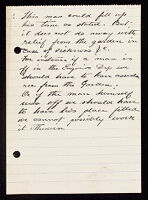 This man could fill up
his time as stated. But
it does not do away with
relief from the garden in
case of sickness &c.
For instance if a man is
off in the Engine Dep we
should have to have
from the Garden.
Or if the man himself
was off we should have
to have his place filled
we cannot possibly work
it